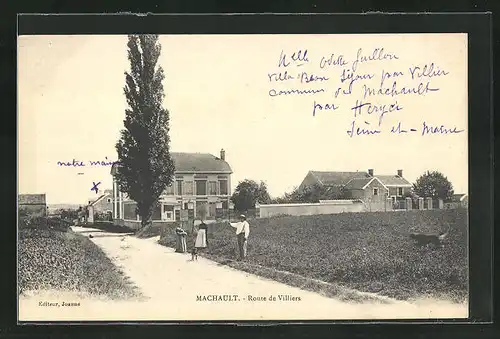 Melle Odette Guillon
Villa Beau Séjour par Villier
commune de Machault
par Hery
Seine et-Marne
notre maison
x
MACHAULT. - Route de Villiers
Editeur, Jeanne